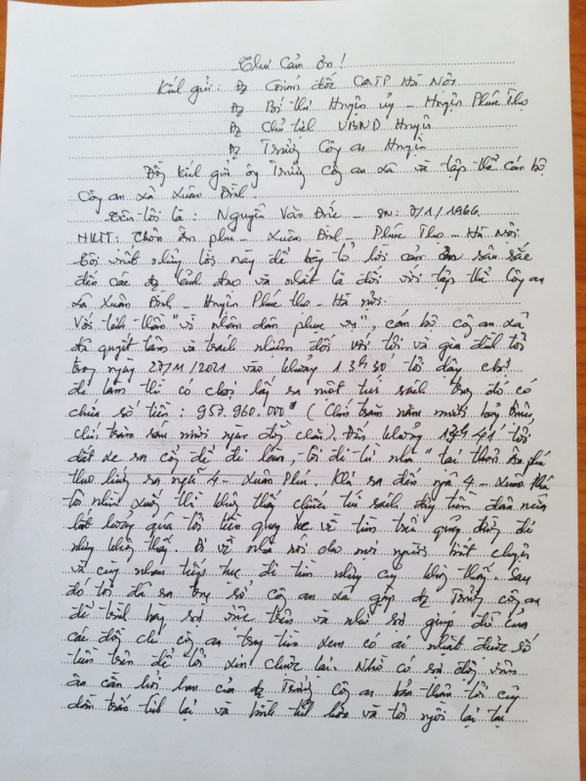 Thư Cảm ơn!
Kính gửi: Đ/c Giám đốc CATP Hà Nội
Đ/c Bí thư Huyện ủy - Huyện Phúc Thọ
Đ/c Chủ tịch UBND Huyện
Đ/c Trưởng Công an Huyện
Đồng kính gửi ông Trưởng Công an xã và tập thể cán bộ
Công an xã Xuân Đình
Tên tôi là: Nguyễn Văn Đức - SN: 7/1/1966
HKTT: Thôn Ân phú - Xuân Đình - Phúc Thọ - Hà Nội
Tôi viết những lời này để bày tỏ lời cảm ơn sâu sắc
đến các đ/c lãnh đạo và nhất là đối với tập thể Công an
xã Xuân Đình - Huyện Phúc thọ - Hà nội.
Với tinh thần "vì nhân dân phục vụ", cán bộ công an xã
đã quyết tâm và trách nhiệm đối với tôi và gia đình tôi
trong ngày 27/11/2021 vào khoảng 13h30' tôi dậy
đi làm thì có lấy ra một túi sách trong đó có
chứa số tiền: 957.960.000đ (Chín trăm năm mươi bảy triệu,
chín trăm sáu mươi ngàn đồng chẵn). Đến khoảng 13h41' tôi
dắt xe ra cổng để đi làm, tôi đi từ nhà tại thôn Ân phú
theo hướng ra ngã 4 - Xuân Phú. Khi ra đến ngã 4 - Xuân Phú
tôi nhìn xuống thì không thấy chiếc túi sách đựng tiền đâu nữa
hốt hoảng quá tôi liền quay xe về tìm trên quãng đường đi
nhưng không thấy. Đi về nhà nói cho mọi người biết chuyện
và cùng nhau tiếp tục đi tìm nhưng cũng không thấy. Sau
đó tôi đi ra trụ sở công an xã gặp đ/c Trưởng công an
để trình bày sự việc trên và nhờ sự giúp đỡ của
các đồng chí công an truy tìm xem có ai nhặt được số
tiền trên để tôi xin chuộc lại. Nhờ có sự động viên
ân cần hỏi han của đ/c Trưởng Công an bản thân tôi cũng
dần trấn tĩnh lại và bình tĩnh hơn và tôi ngồi lại tại